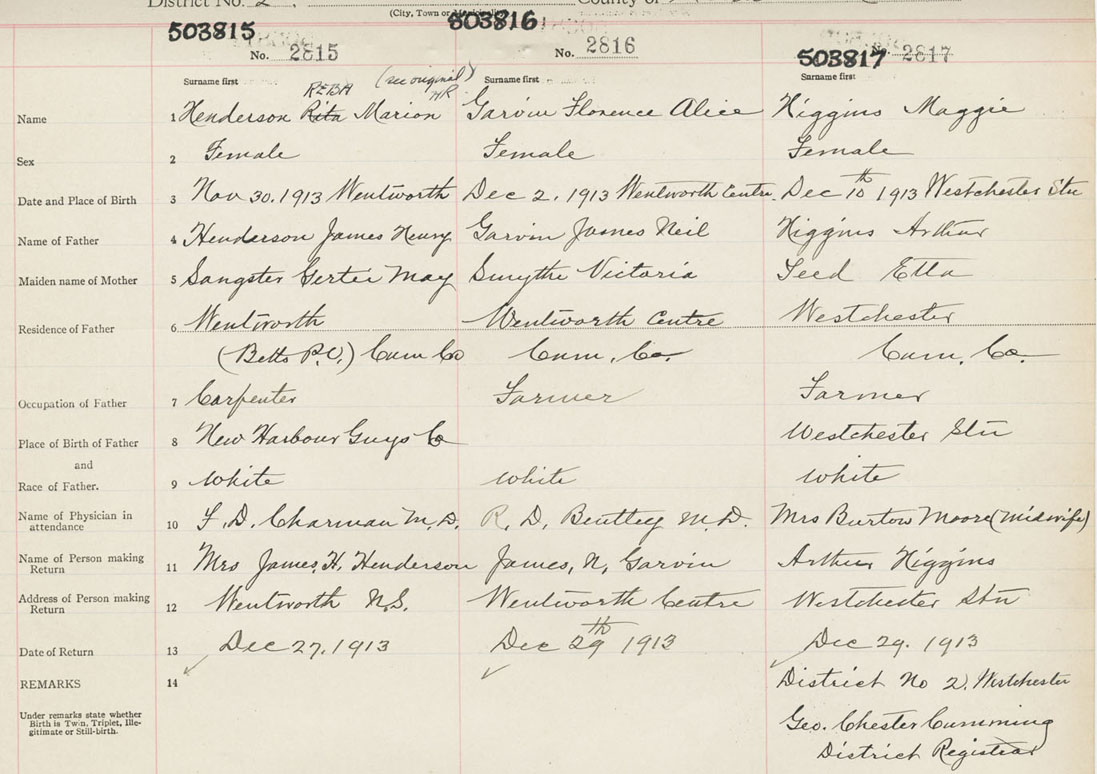 District No. 2. County of
(City, Town or Municipality)
503815 503816 503817
No. 2815 No. 2816 2817
Surname first Surname first Surname first
REBA (see original) HR
Name 1 Henderson Rita Marion Garvin Florence Alice Higgins Maggie
Sex 2 Female Female Female
Date and Place of Birth 3 Nov 30. 1913 Wentworth Dec 2. 1913 Wentworth Centre. Dec 10th 1913 Westchester Stn
Name of Father 4 Henderson James Henry Garvin James Neil Higgins Arthur
Maiden name of Mother 5 Sangster Gertie May Smythe Victoria Teed Etta
Residence of Father 6 Wentworth Wentworth Centre Westchester
(Betts P.O.) Cum Co Cum, Co. Cum, Co.
Occupation of Father 7 Carpenter Farmer Farmer
Place of Birth of Father 8 New Harbour Guys Co Westchester Stn
and
Race of Father. 9 White White White
Name of Physician in attendance 10 F. D. Charman M.D. R. D. Bentley M.D. Mrs Burton Moore (Midwife)
Name of Person making Return 11 Mrs James. H. Henderson James, N, Garvin Arthur Higgins
Address of Person making Return 12 Wentworth N.S. Wentworth Centre Westchester Stn
Date of Return 13 Dec 27, 1913 Dec 29th 1913 Dec 29. 1913
REMARKS 14 District No 2. Westchester
Under remarks state whether Birth is Twin, Triplet, Ille-
gitimate or Still-birth.
Geo. Chester Cumming
District Registrar